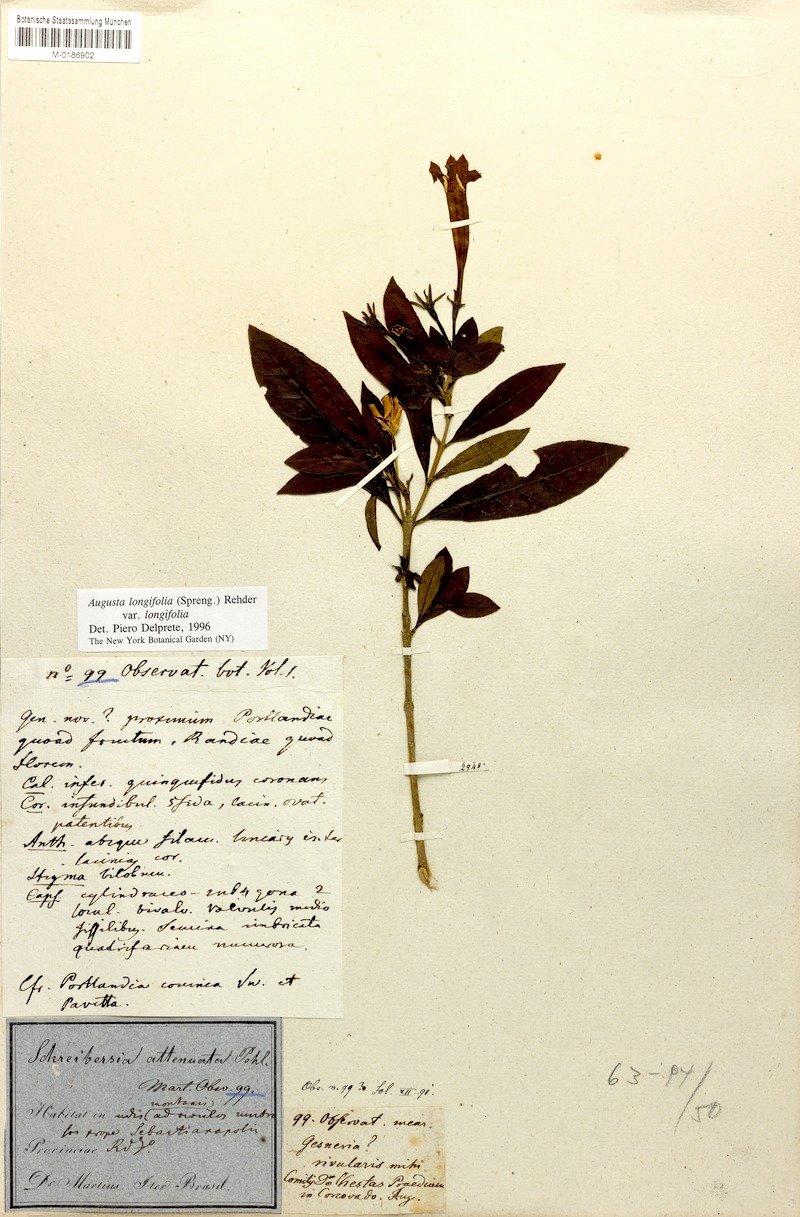 Botanische Staatssammlung München
M-0186902
Augusta longifolia (Spreng.) Rehder
var. longifolia
Det. Piero Delprete, 1996
The New York Botanical Garden (NY)
nº 99 Observat. bot. Vol. 1.
Gen. nov.? proximum Portlandiae
quoad fructum, Randiae quoad
florem.
Cal. infer. quinquefidus coronans
Cor. infundibul. 5fida, lacin. ovat.
patentibus
Anth. absque filam. linearis inter
lacinias cor.
Stigma bilobum.
Caps cylindraceo-sub4gona 2
locul. bivalv. valvulis medio
fissilibus. Semina imbricata
quadrifariam numerosa.
Cfr. Portlandia coccinea Sw. et
Pavetta.
2948.
Schreibersia attenuata Pohl.
Mart. Obs. 99.
montanis
Habitat in udis (ad rivulos umbro
sos prope Sebastianopolis
Provinciae
Dr Martius Iter Brasil.
Obs. n. 99
99. Observat. meae.
Gesneria?
rivularis mihi.
Praedium
in Corcovado. Aug.
63-94/50